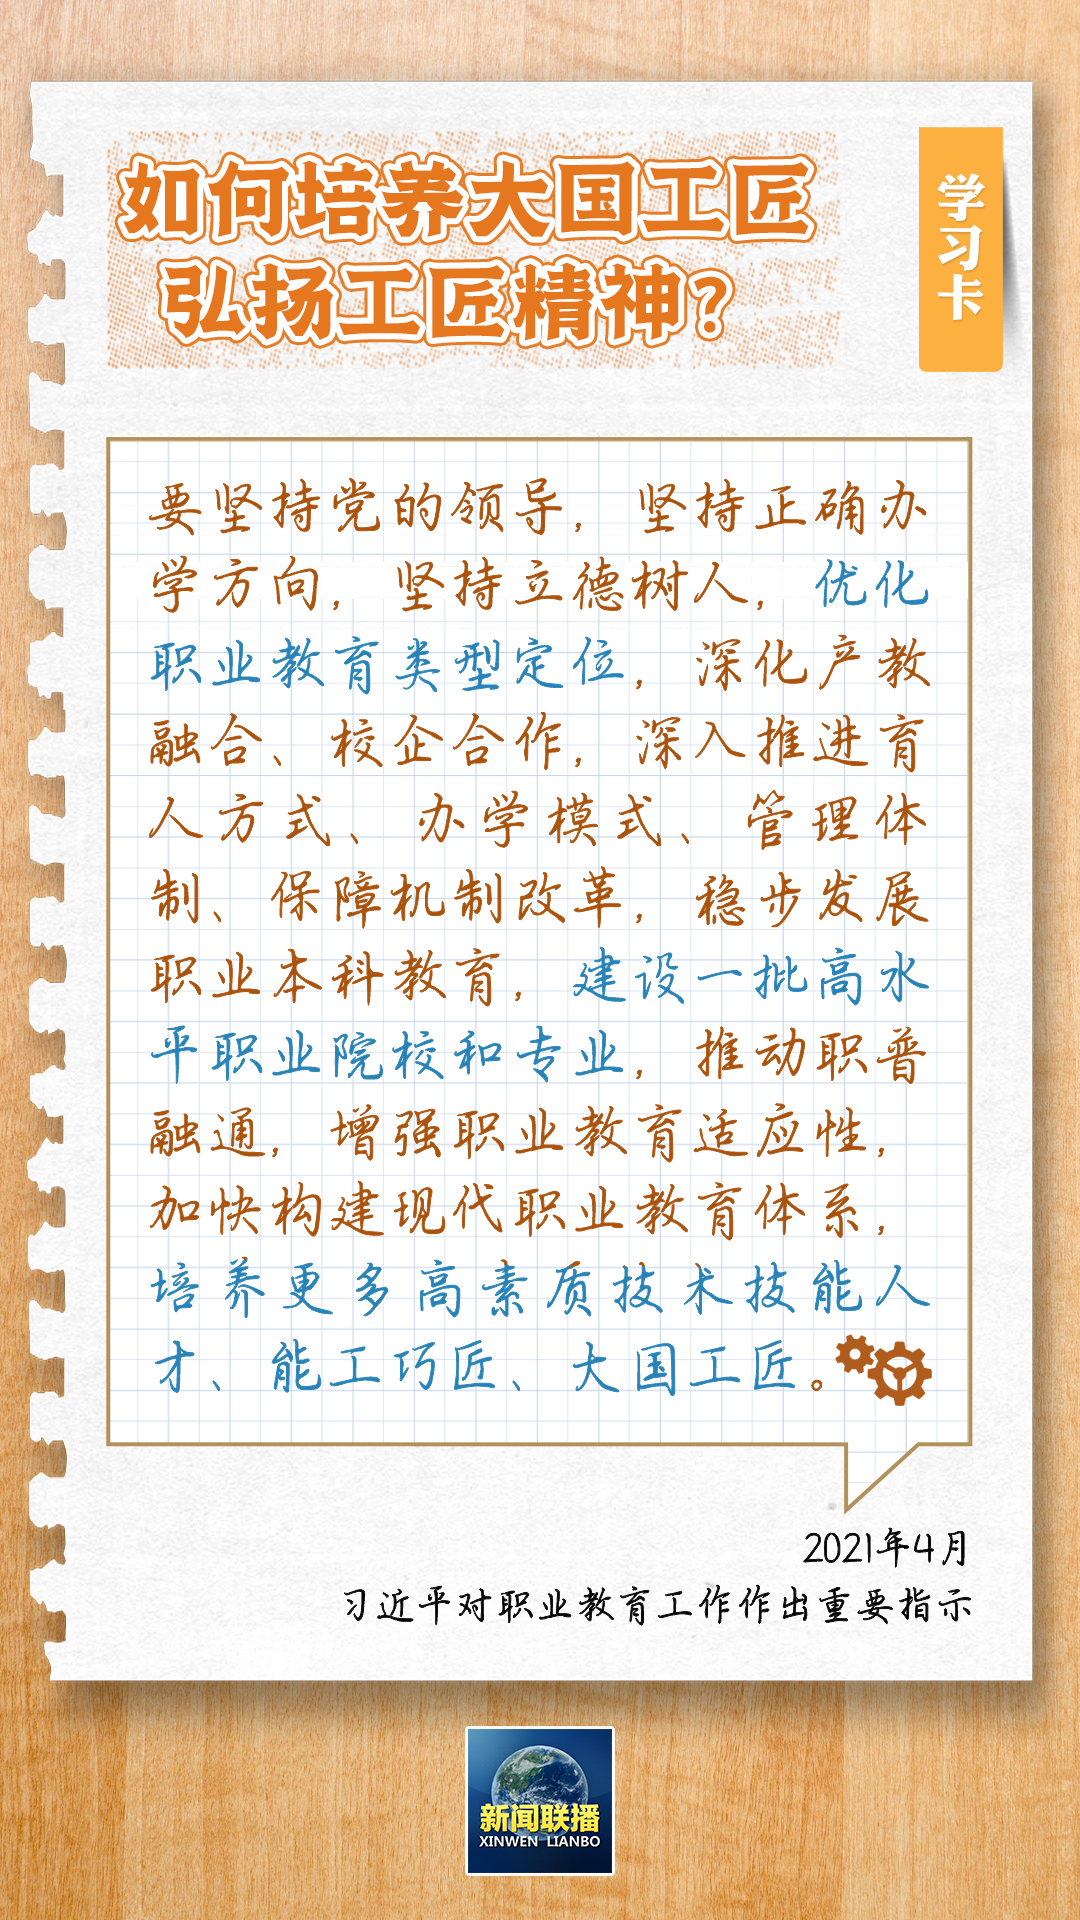 如何培养大国工匠
弘扬工匠精神？
学习卡
要坚持党的领导，坚持正确办
学方向，坚持立德树人，优化
职业教育类型定位，深化产教
融合、校企合作，深入推进育
人方式、办学模式、管理体
制、保障机制改革，稳步发展
职业本科教育，建设一批高水
平职业院校和专业，推动职普
融通，增强职业教育适应性，
加快构建现代职业教育体系，
培养更多高素质技术技能人
才、能工巧匠、大国工匠。
2021年4月
习近平对职业教育工作作出重要指示
新闻联播
XINWEN LIANBO